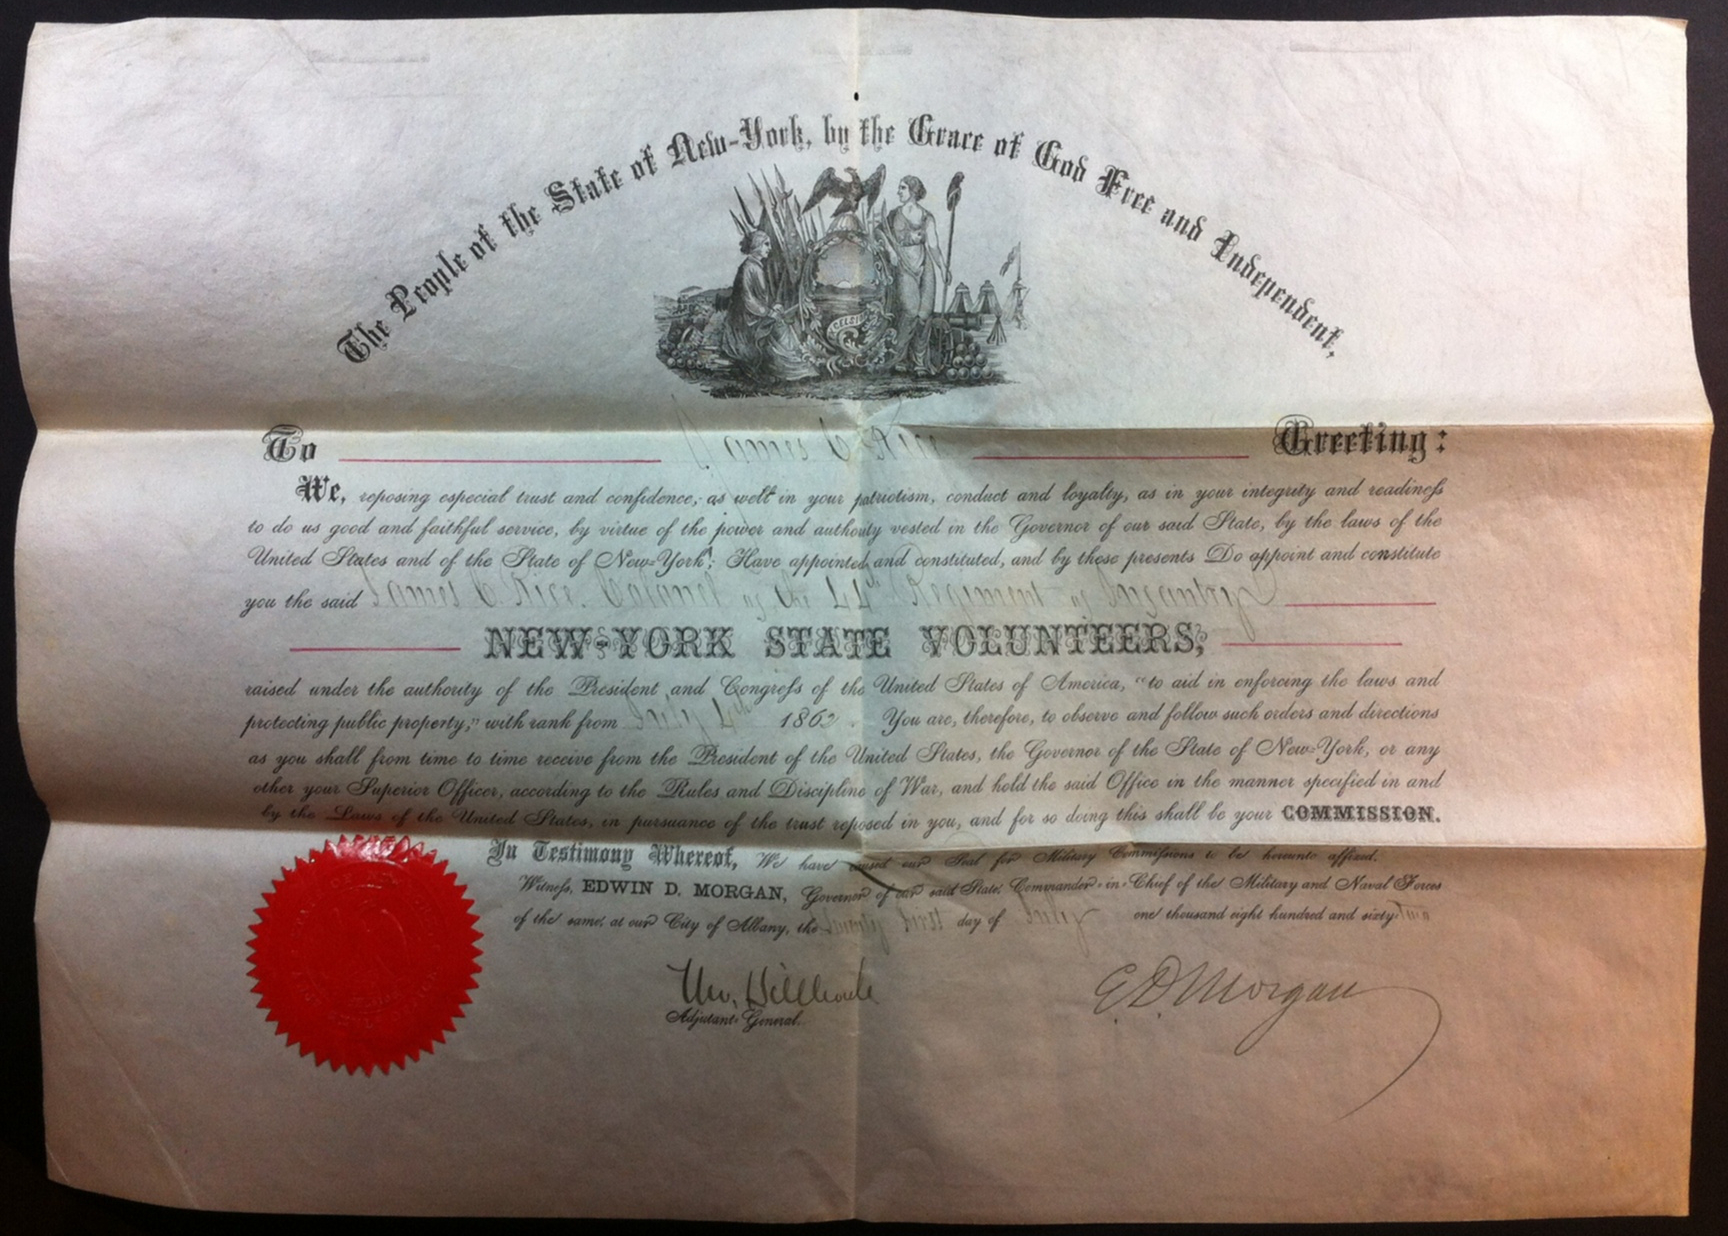 The People of the State of New-York, by the Grace of God Free and Independent,
To James C. Rice Greeting:
We, reposing especial trust and confidence, as well in your patriotism, conduct and loyalty, as in your integrity and readiness
to do us good and faithful service, by virtue of the power and authority vested in the Governor of our said State, by the laws of the
United States and of the State of New-York; Have appointed and constituted, and by these presents Do appoint and constitute
you the said James C. Rice. Colonel of the 44th Regiment of Infantry
NEW-YORK STATE VOLUNTEERS,
raised under the authority of the President and Congress of the United States of America, "to aid in enforcing the laws and
protecting public property," with rank from July 4th 1862. You are, therefore, to observe and follow such orders and directions
as you shall from time to time receive from the President of the United States, the Governor of the State of New-York, or any
other your Superior Officer, according to the Rules and Discipline of War, and hold the said Office in the manner specified in and
by the Laws of the United States, in pursuance of the trust reposed in you, and for so doing this shall be your COMMISSION.
In Testimony Whereof, We have caused our Seal for Military Commissions to be hereunto affixed.
Witness, EDWIN D. MORGAN, Governor of our said State, Commander-in-Chief of the Military and Naval Forces
of the same, at our City of Albany, the twenty first day of July one thousand eight hundred and sixty two
Tho. Hillhouse E. D. Morgan
Adjutant-General.